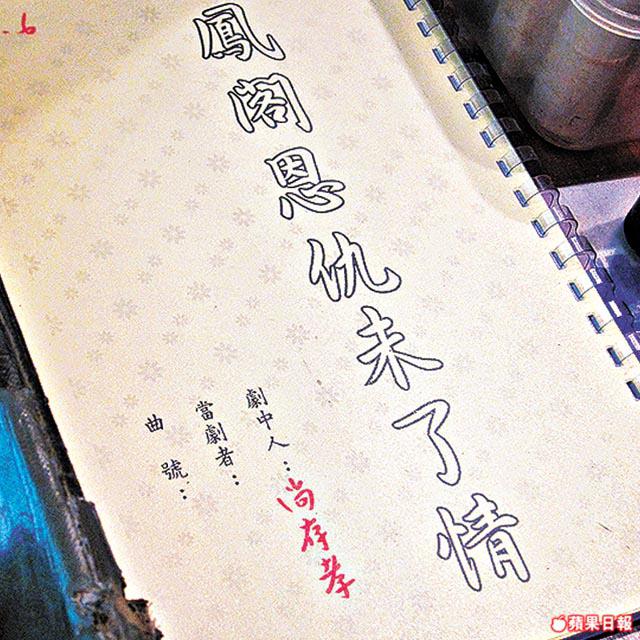 鳳閣恩仇未了情
劇中人：尚存孝
當劇者：
曲號：
蘋果日報